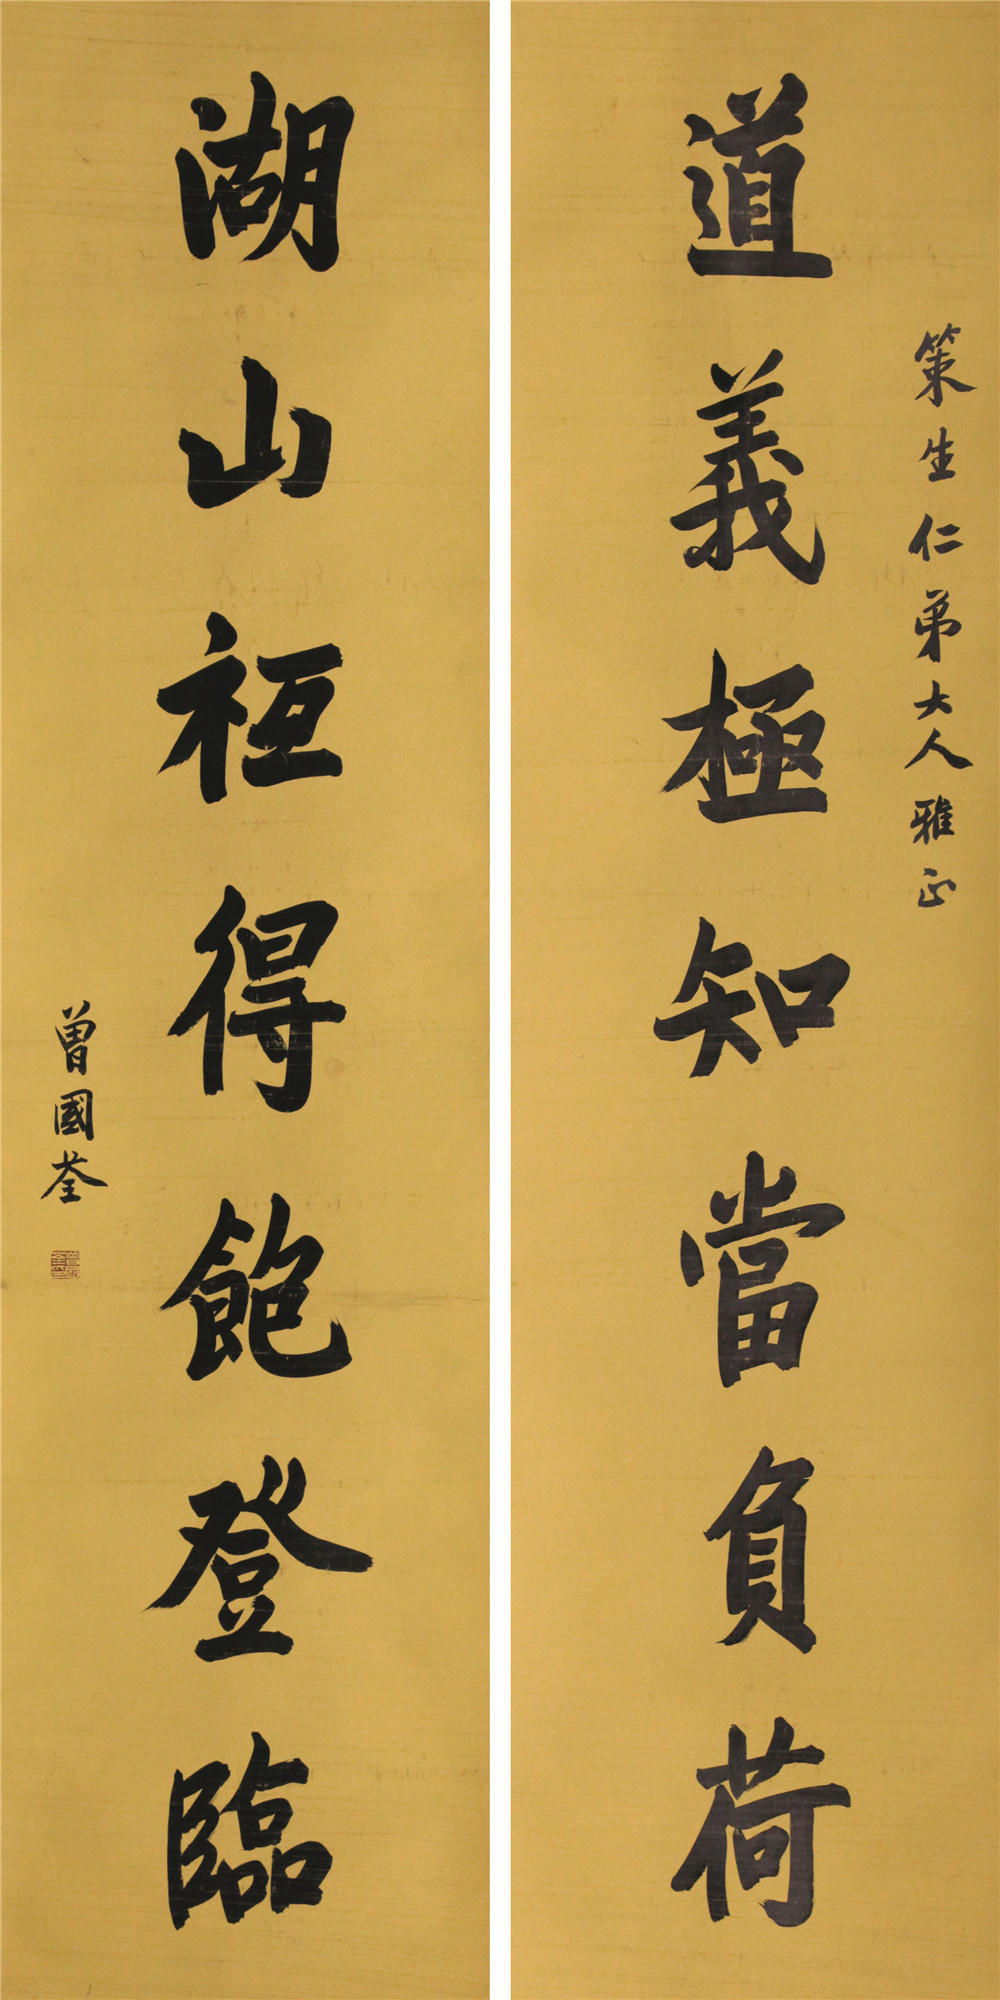 策生仁弟大人雅正
道義極知當負荷
湖山秪得飽登臨
曾國荃